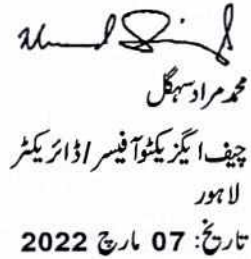 محمد مراد سہگل
چیف ایگزیکٹو آفیسر / ڈائریکٹر
لاہور
تاریخ: 07 مارچ 2022